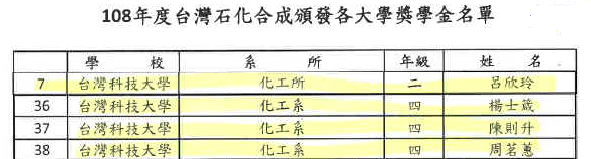 108年度台灣石化合成頒發各大學獎學金名單
學 校 系 所 年級 姓 名
7 台灣科技大學 化工所 二 呂欣玲
36 台灣科技大學 化工系 四 楊士箴
37 台灣科技大學 化工系 四 陳則升
38 台灣科技大學 化工系 四 周茗蕙